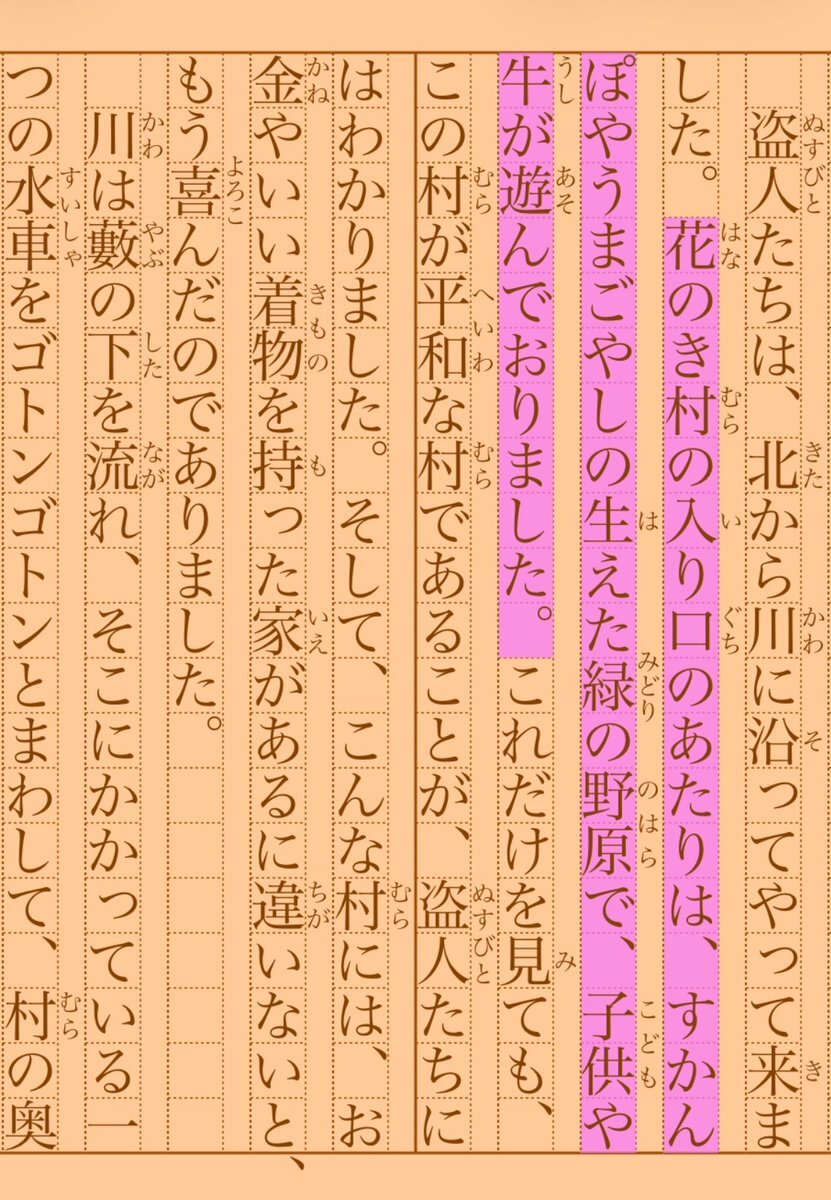 盗人たちは、北から川に沿ってやって来ま
した。花のき村の入り口のあたりは、すかん
ぽやうまごやしの生えた緑の野原で、子供や
牛が遊んでおりました。これだけを見ても、
この村が平和な村であることが、盗人たちに
はわかりました。そして、こんな村には、お
金やいい着物を持った家があるに違いないと、
もう喜んだのでありました。
川は藪の下を流れ、そこにかかっている一
つの水車をゴトンゴトンとまわして、村の奥